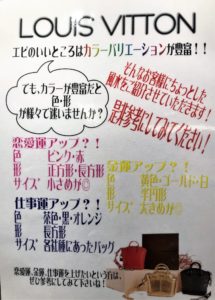 LOUIS VITTON
エピのいいところはカラーバリエーションが豊富！！
でも、カラーが豊富だと
色・形
が様々で迷いませんか？
そんなお客様にちょっとした
風水をご紹介させていただきます！
是非参考にしてみてください！
恋愛運アップ？！
色 ピンク・赤
形 正方形・長方形
サイズ 小さめが◎
金運アップ？！
色 黄色・ゴールド・白
形 半円形
サイズ 大きめが◎
仕事運アップ？！
色 茶色・黒・オレンジ
形 長方形
サイズ 各社種にあったバッグ
恋愛運、金運、仕事運を上げたいという方は、
ぜひ参考にしてみて下さいね！